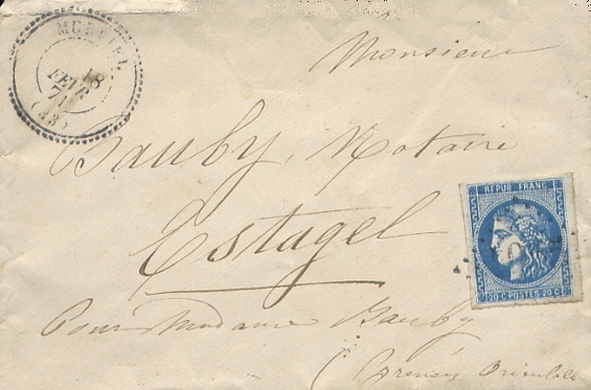 18
FEVR
71
(33)
Monsieur
Bauby, Notaire
Estagel
REPUB FRANC
20 C POSTES 20 C
Pour Madame Bauby
(Pyrénées Orientales